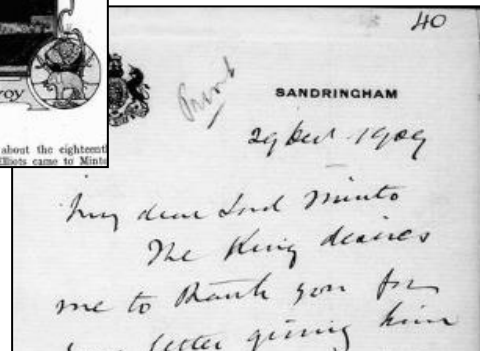 40
roy
about the eighteenth
Elliots came to Minto
Privt
SANDRINGHAM
29 Dec 1909
My dear Lord Minto
The King desires
me to thank you for
your letter giving him